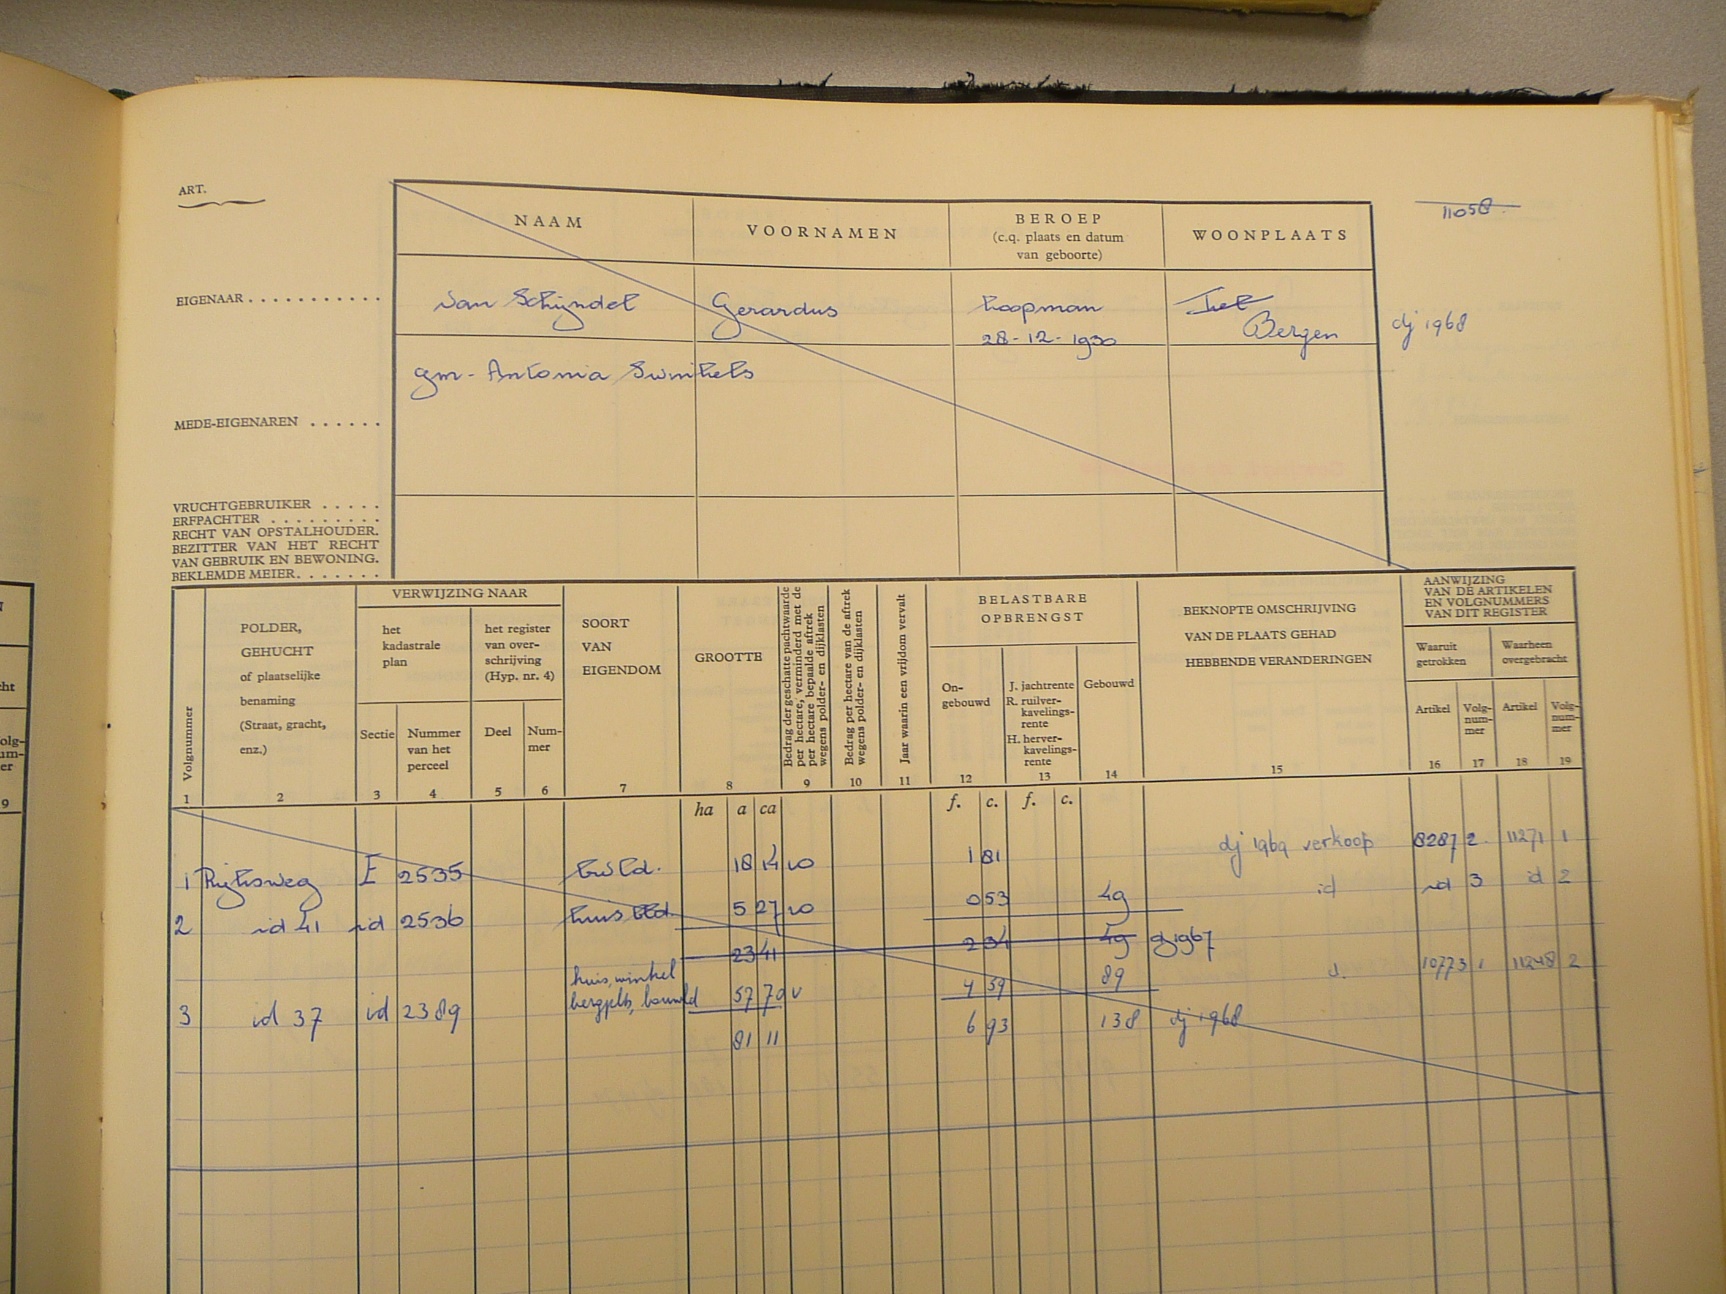 ART.
NAAM
VOORNAMEN
BEROEP
(c.q. plaats en datum
van geboorte)
WOONPLAATS
11058
EIGENAAR
van Schijndel
Gerardus
koopman
28-12-1930
Bergen
dj 1968
gm. Antonia Swinkels
MEDE-EIGENAREN
VRUCHTGEBRUIKER
ERFPACHTER
RECHT VAN OPSTALHOUDER.
BEZITTER VAN HET RECHT
VAN GEBRUIK EN BEWONING.
BEKLEMDE MEIER
Volgnummer
POLDER,
GEHUCHT
of plaatselijke
benaming
(Straat, gracht,
enz.)
VERWIJZING NAAR
het
kadastrale
plan
het register
van over-
schrijving
(Hyp. nr. 4)
Sectie
Nummer
van het
perceel
Deel
Num-
mer
SOORT
VAN
EIGENDOM
GROOTTE
Bedrag der geschatte pachtwaarde
per hectare, verminderd met de
per hectare bepaalde aftrek
wegens polder- en dijklasten
Bedrag per hectare van de aftrek
wegens polder- en dijklasten
Jaar waarin een vrijdom vervalt
BELASTBARE
OPBRENGST
On-
gebouwd
J. jachtrente
R. ruilver-
kavelings-
rente
H. herver-
kavelings-
rente
Gebouwd
BEKNOPTE OMSCHRIJVING
VAN DE PLAATS GEHAD
HEBBENDE VERANDERINGEN
AANWIJZING
VAN DE ARTIKELEN
EN VOLGNUMMERS
VAN DIT REGISTER
Waaruit
getrokken
Waarheen
overgebracht
Artikel
Volg-
num-
mer
Artikel
Volg-
num-
mer
1 2 3 4 5 6 7 8 9 10 11 12 13 14 15 16 17 18 19
ha a ca f. c. f. c.
1 E 2535 18 14 1 81 dj 1969 verkoop 8287 2 11271 1
2 id 41 id 2536 huis 5 27 0 53 49 id id 3 id 2
23 41 2 34 49 dj 1967
3 id 37 id 2389 huis, winkel
57 70 v 4 59 89 10773 1 11248 2
81 11 6 93 138 dj 1968